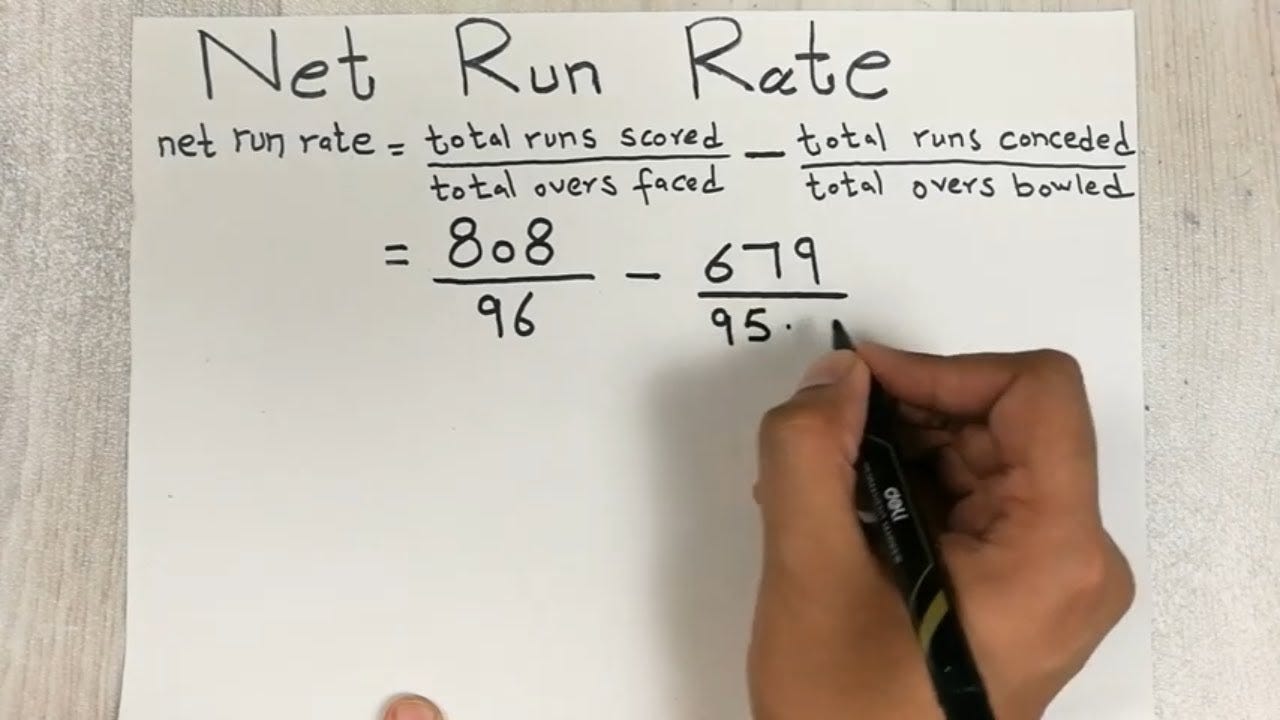 Net Run Rate
net run rate = total runs scored / total overs faced − total runs conceded / total overs bowled
= 808 / 96 − 679 / 95.
deli